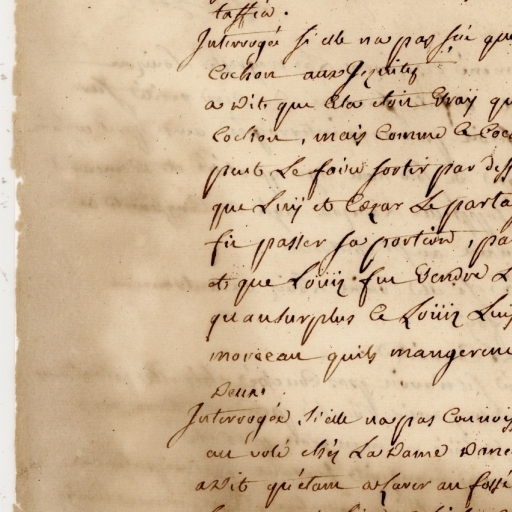 taffia.
Interrogée si elle na pas sçu que
Cochon aux Jesuites
a dit que Cela étoit vray qu
Cochon, mais Comme Ce Coc
peut le faire sortir par dess
que Luy et Cezar Le parta
fit passer sa portion, pa
et que Loüis fut vendre L
qu'au surplus Ce Loüis Luy
morceau quils mangerent
deux.
Interrogée, Si elle na pas Connois
au volé chés La Dame
a dit qu'étant a Laver au fossé